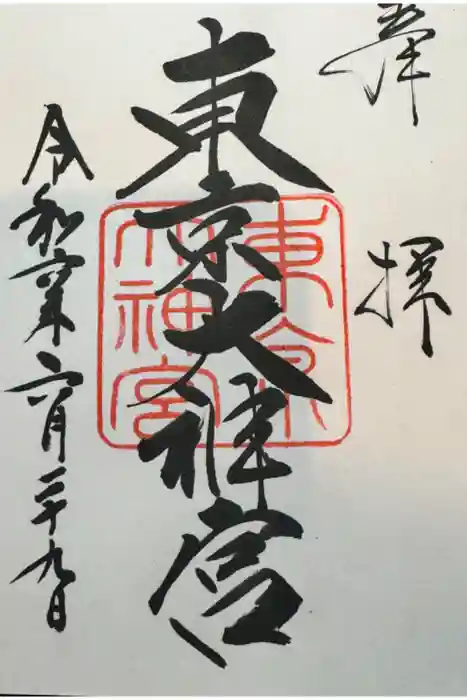 奉拝
東京大神宮
東京
大神宮
令和六年六月二十九日